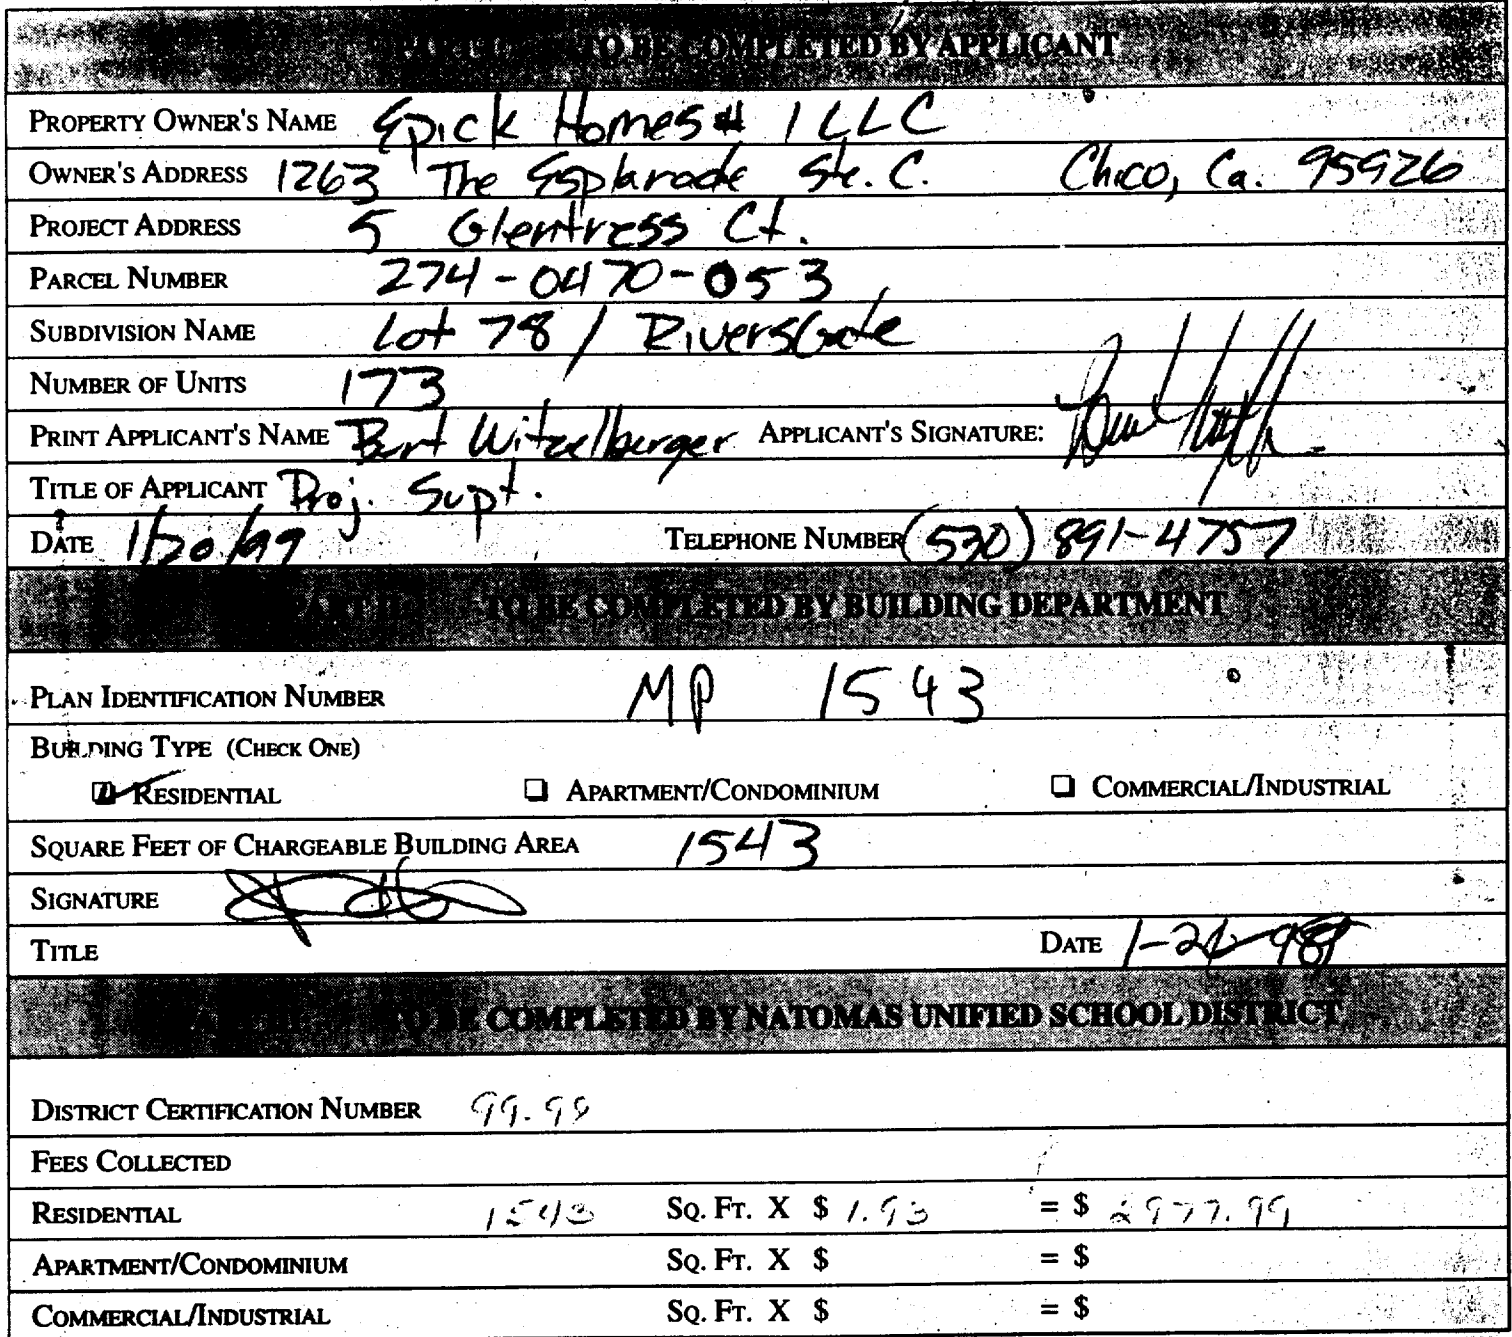 TO BE COMPLETED BY APPLICANT
PROPERTY OWNER'S NAME Epick Homes # 1 LLC
OWNER'S ADDRESS 1263 The Esplanade Ste. C. Chico, Ca. 95926
PROJECT ADDRESS 5 Glentress Ct.
PARCEL NUMBER 274-0470-053
SUBDIVISION NAME Lot 78 / RiversGate
NUMBER OF UNITS 173
PRINT APPLICANT'S NAME Burt Witzelburger APPLICANT'S SIGNATURE:
TITLE OF APPLICANT Proj. Supt.
DATE 1/20/99 TELEPHONE NUMBER (530) 891-4757
PART II TO BE COMPLETED BY BUILDING DEPARTMENT
PLAN IDENTIFICATION NUMBER MP 1543
BUILDING TYPE (CHECK ONE)
RESIDENTIAL APARTMENT/CONDOMINIUM COMMERCIAL/INDUSTRIAL
SQUARE FEET OF CHARGEABLE BUILDING AREA 1543
SIGNATURE
TITLE DATE
TO BE COMPLETED BY NATOMAS UNIFIED SCHOOL DISTRICT
DISTRICT CERTIFICATION NUMBER 99.98
FEES COLLECTED
RESIDENTIAL 1543 SQ. FT. X $ 1.93 = $ 2977.99
APARTMENT/CONDOMINIUM SQ. FT. X $ = $
COMMERCIAL/INDUSTRIAL SQ. FT. X $ = $